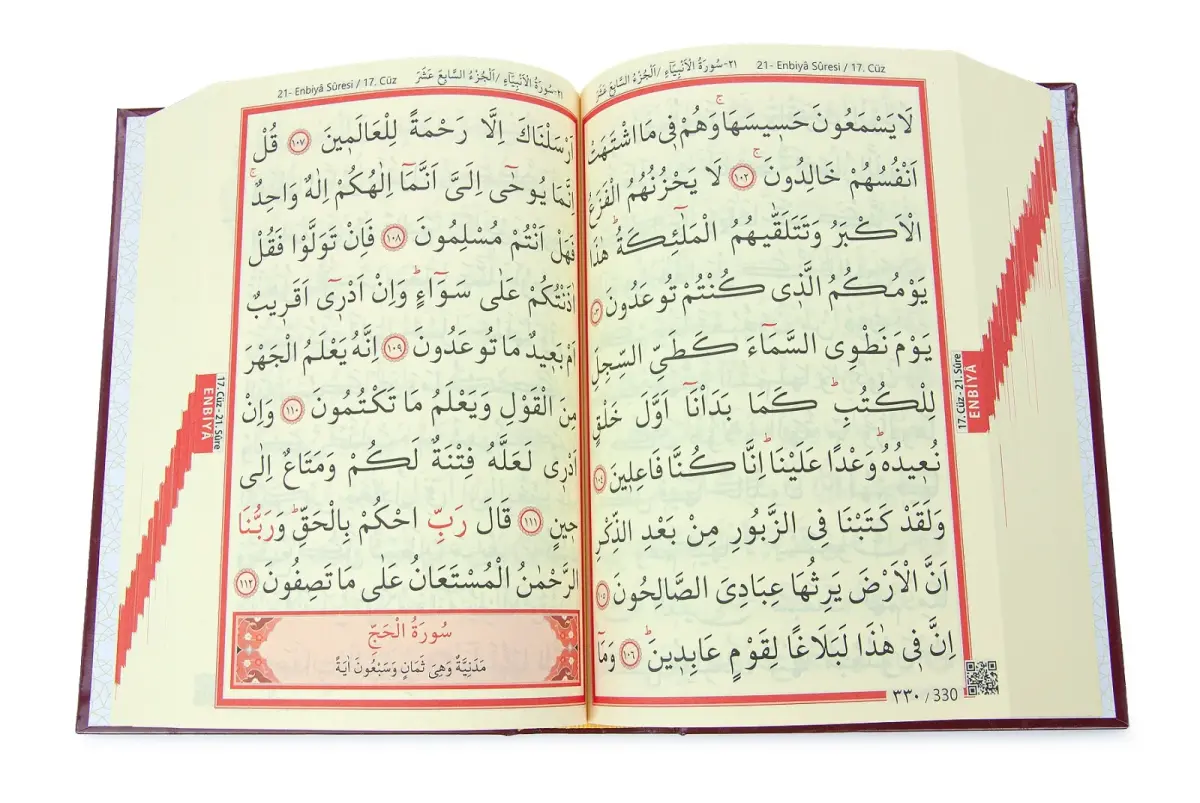 ٢١-سُورَةُ الْاَنْبِيَٓاءِ /اَلْجُزْءُ السَّابِعَ عَشَرَ 21- Enbiyâ Sûresi / 17. Cüz
لَا يَسْمَعُونَ حَسٖيسَهَاۚ وَهُمْ فٖى مَا اشْتَهَتْ
اَنْفُسُهُمْ خَالِدُونَۚ ﴿١٠٢﴾ لَا يَحْزُنُهُمُ الْفَزَعُ
الْاَكْبَرُ وَتَتَلَقّٰيهُمُ الْمَلٰٓئِكَةُؕ هٰذَا
يَوْمُكُمُ الَّذٖى كُنْتُمْ تُوعَدُونَ ﴿١٠٣﴾
يَوْمَ نَطْوِى السَّمَٓاءَ كَطَىِّ السِّجِلِّ
لِلْكُتُبِؕ كَمَا بَدَأْنَٓا اَوَّلَ خَلْقٍ
نُعٖيدُهُؕ وَعْدًا عَلَيْنَاؕ اِنَّا كُنَّا فَاعِلٖينَ ﴿١٠٤﴾
وَلَقَدْ كَتَبْنَا فِى الزَّبُورِ مِنْ بَعْدِ الذِّكْرِ
اَنَّ الْاَرْضَ يَرِثُهَا عِبَادِىَ الصَّالِحُونَ ﴿١٠٥﴾
اِنَّ فٖى هٰذَا لَبَلَاغًا لِقَوْمٍ عَابِدٖينَؕ ﴿١٠٦﴾ وَمَٓا
٣٣٠ / 330
17. Cüz - 21. Sûre
ENBİYÂ
21- Enbiyâ Sûresi / 17. Cüz ٢١-سُورَةُ الْاَنْبِيَٓاءِ /اَلْجُزْءُ السَّابِعَ عَشَرَ
اَرْسَلْنَاكَ اِلَّا رَحْمَةً لِلْعَالَمٖينَ ﴿١٠٧﴾ قُلْ
اِنَّمَا يُوحٰٓى اِلَىَّ اَنَّمَٓا اِلٰهُكُمْ اِلٰهٌ وَاحِدٌۚ
فَهَلْ اَنْتُمْ مُسْلِمُونَ ﴿١٠٨﴾ فَاِنْ تَوَلَّوْا فَقُلْ
اٰذَنْتُكُمْ عَلٰى سَوَٓاءٍؕ وَاِنْ اَدْرٖٓى اَقَرٖيبٌ
اَمْ بَعٖيدٌ مَا تُوعَدُونَ ﴿١٠٩﴾ اِنَّهُ يَعْلَمُ الْجَهْرَ
مِنَ الْقَوْلِ وَيَعْلَمُ مَا تَكْتُمُونَ ﴿١١٠﴾ وَاِنْ
اَدْرٖى لَعَلَّهُ فِتْنَةٌ لَكُمْ وَمَتَاعٌ اِلٰى
حٖينٍ ﴿١١١﴾ قَالَ رَبِّ احْكُمْ بِالْحَقِّؕ وَرَبُّنَا
الرَّحْمٰنُ الْمُسْتَعَانُ عَلٰى مَا تَصِفُونَ ﴿١١٢﴾
سُورَةُ الْحَجِّ
مَدَنِيَّةٌ وَهِىَ ثَمَانٍ وَسَبْعُونَ اٰيَةً
17. Cüz - 21. Sûre
ENBİYÂ